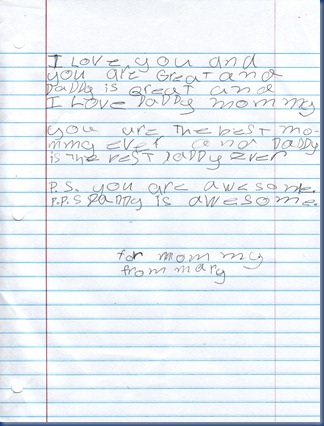 I Love you and
you are Great and
Daddy is Great and
I Love Daddy mommy
you are the best mo-
mmy ever and Daddy
is the best Daddy ever
P.S. you are awesome.
P.P.S Daddy is awesome.
for mommy
from mary